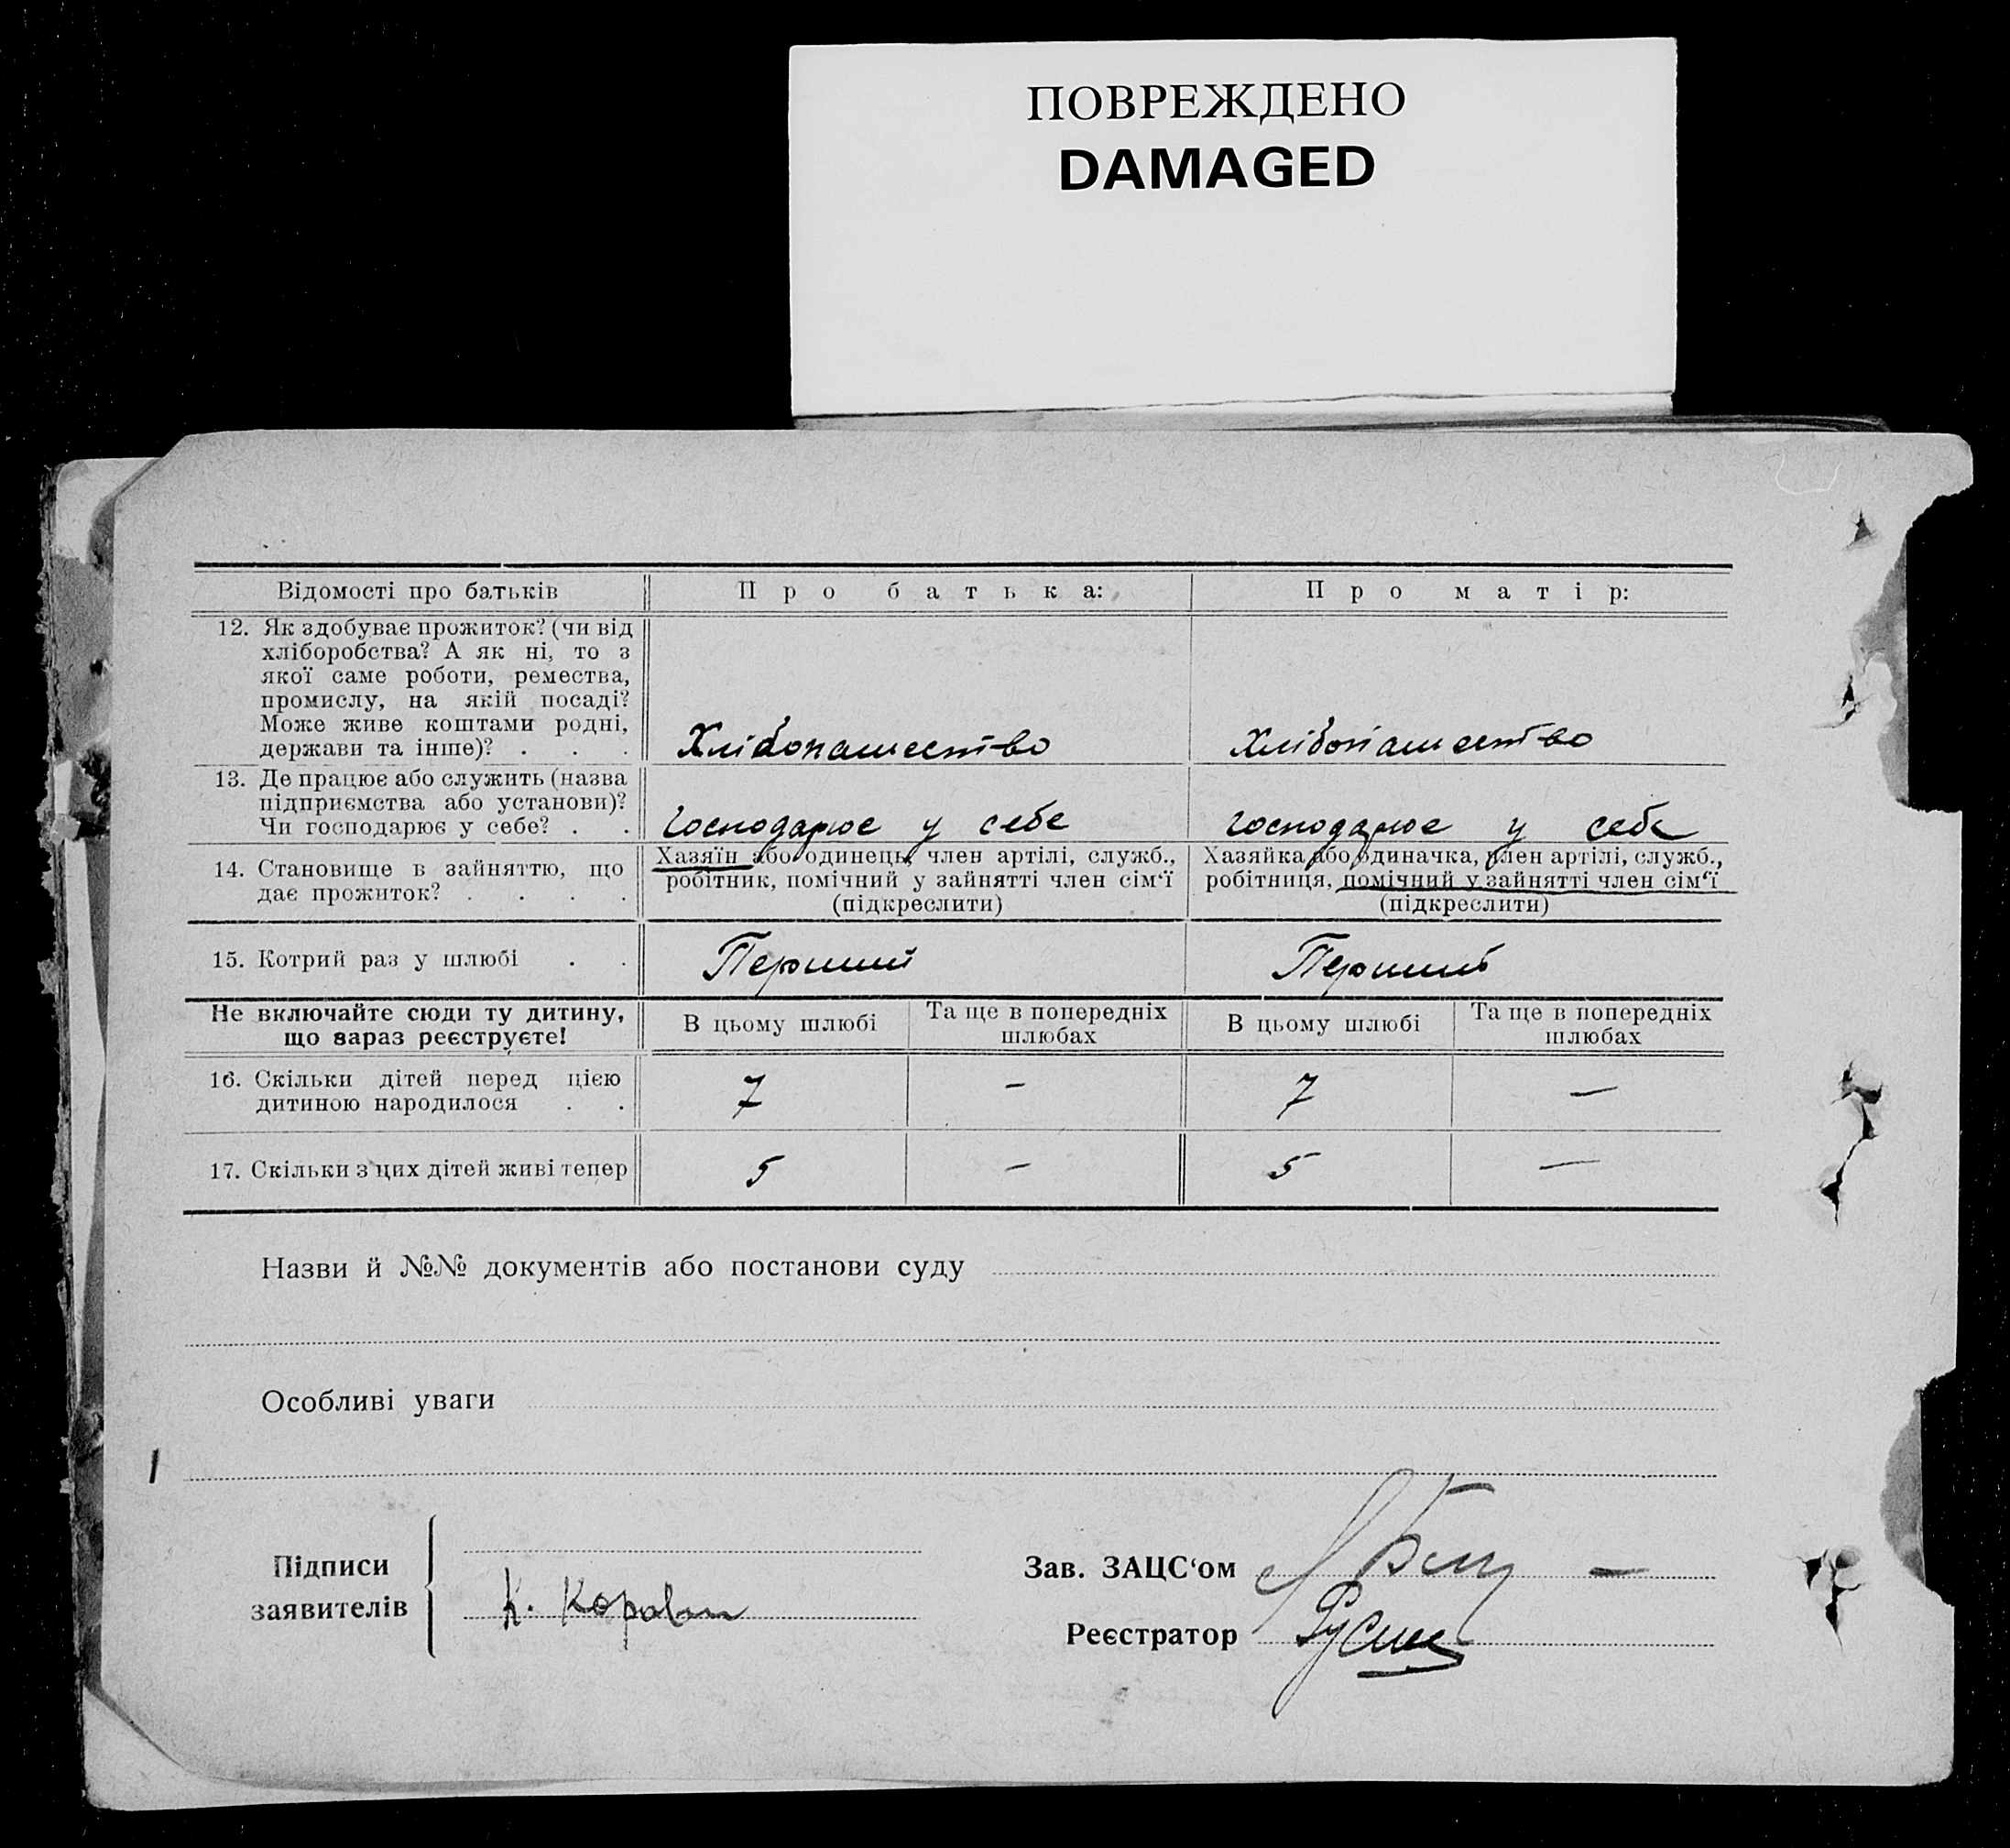 ПОВРЕЖДЕНО
DAMAGED
Відомості про батьків
Про батька:
Про матір:
12. Як здобуває прожиток? (чи від
хліборобства? А як ні, то з
якої саме роботи, ремества,
промислу, на якій посаді?
Може живе коштами родні,
держави та інше)? . . .
Хлібопашество
Хлібопашество
13. Де працює або служить (назва
підприємства або установи)?
Чи господарює у себе? . .
Господарює у себе
Господарює у себе
14. Становище в зайняттю, що
дає прожиток? . . . .
Хазяїн або одинець, член артілі, служб.,
робітник, помічний у зайнятті член сім‘ї
(підкреслити)
Хазяйка або одиначка, член артілі, служб.,
робітниця, помічний у зайнятті член сім‘ї
(підкреслити)
15. Котрий раз у шлюбі . .
Перший
Перший
Не включайте сюди ту дитину,
що зараз реєструєте!
В цьому шлюбі
Та ще в попередніх
шлюбах
В цьому шлюбі
Та ще в попередніх
шлюбах
16. Скільки дітей перед цією
дитиною народилося . .
7
–
7
—
17. Скільки з цих дітей живі тепер
5
–
5
—
Назви й №№ документів або постанови суду
Особливі уваги
Підписи
заявителів
К.
Зав. ЗАЦС‘ом
Реєстратор